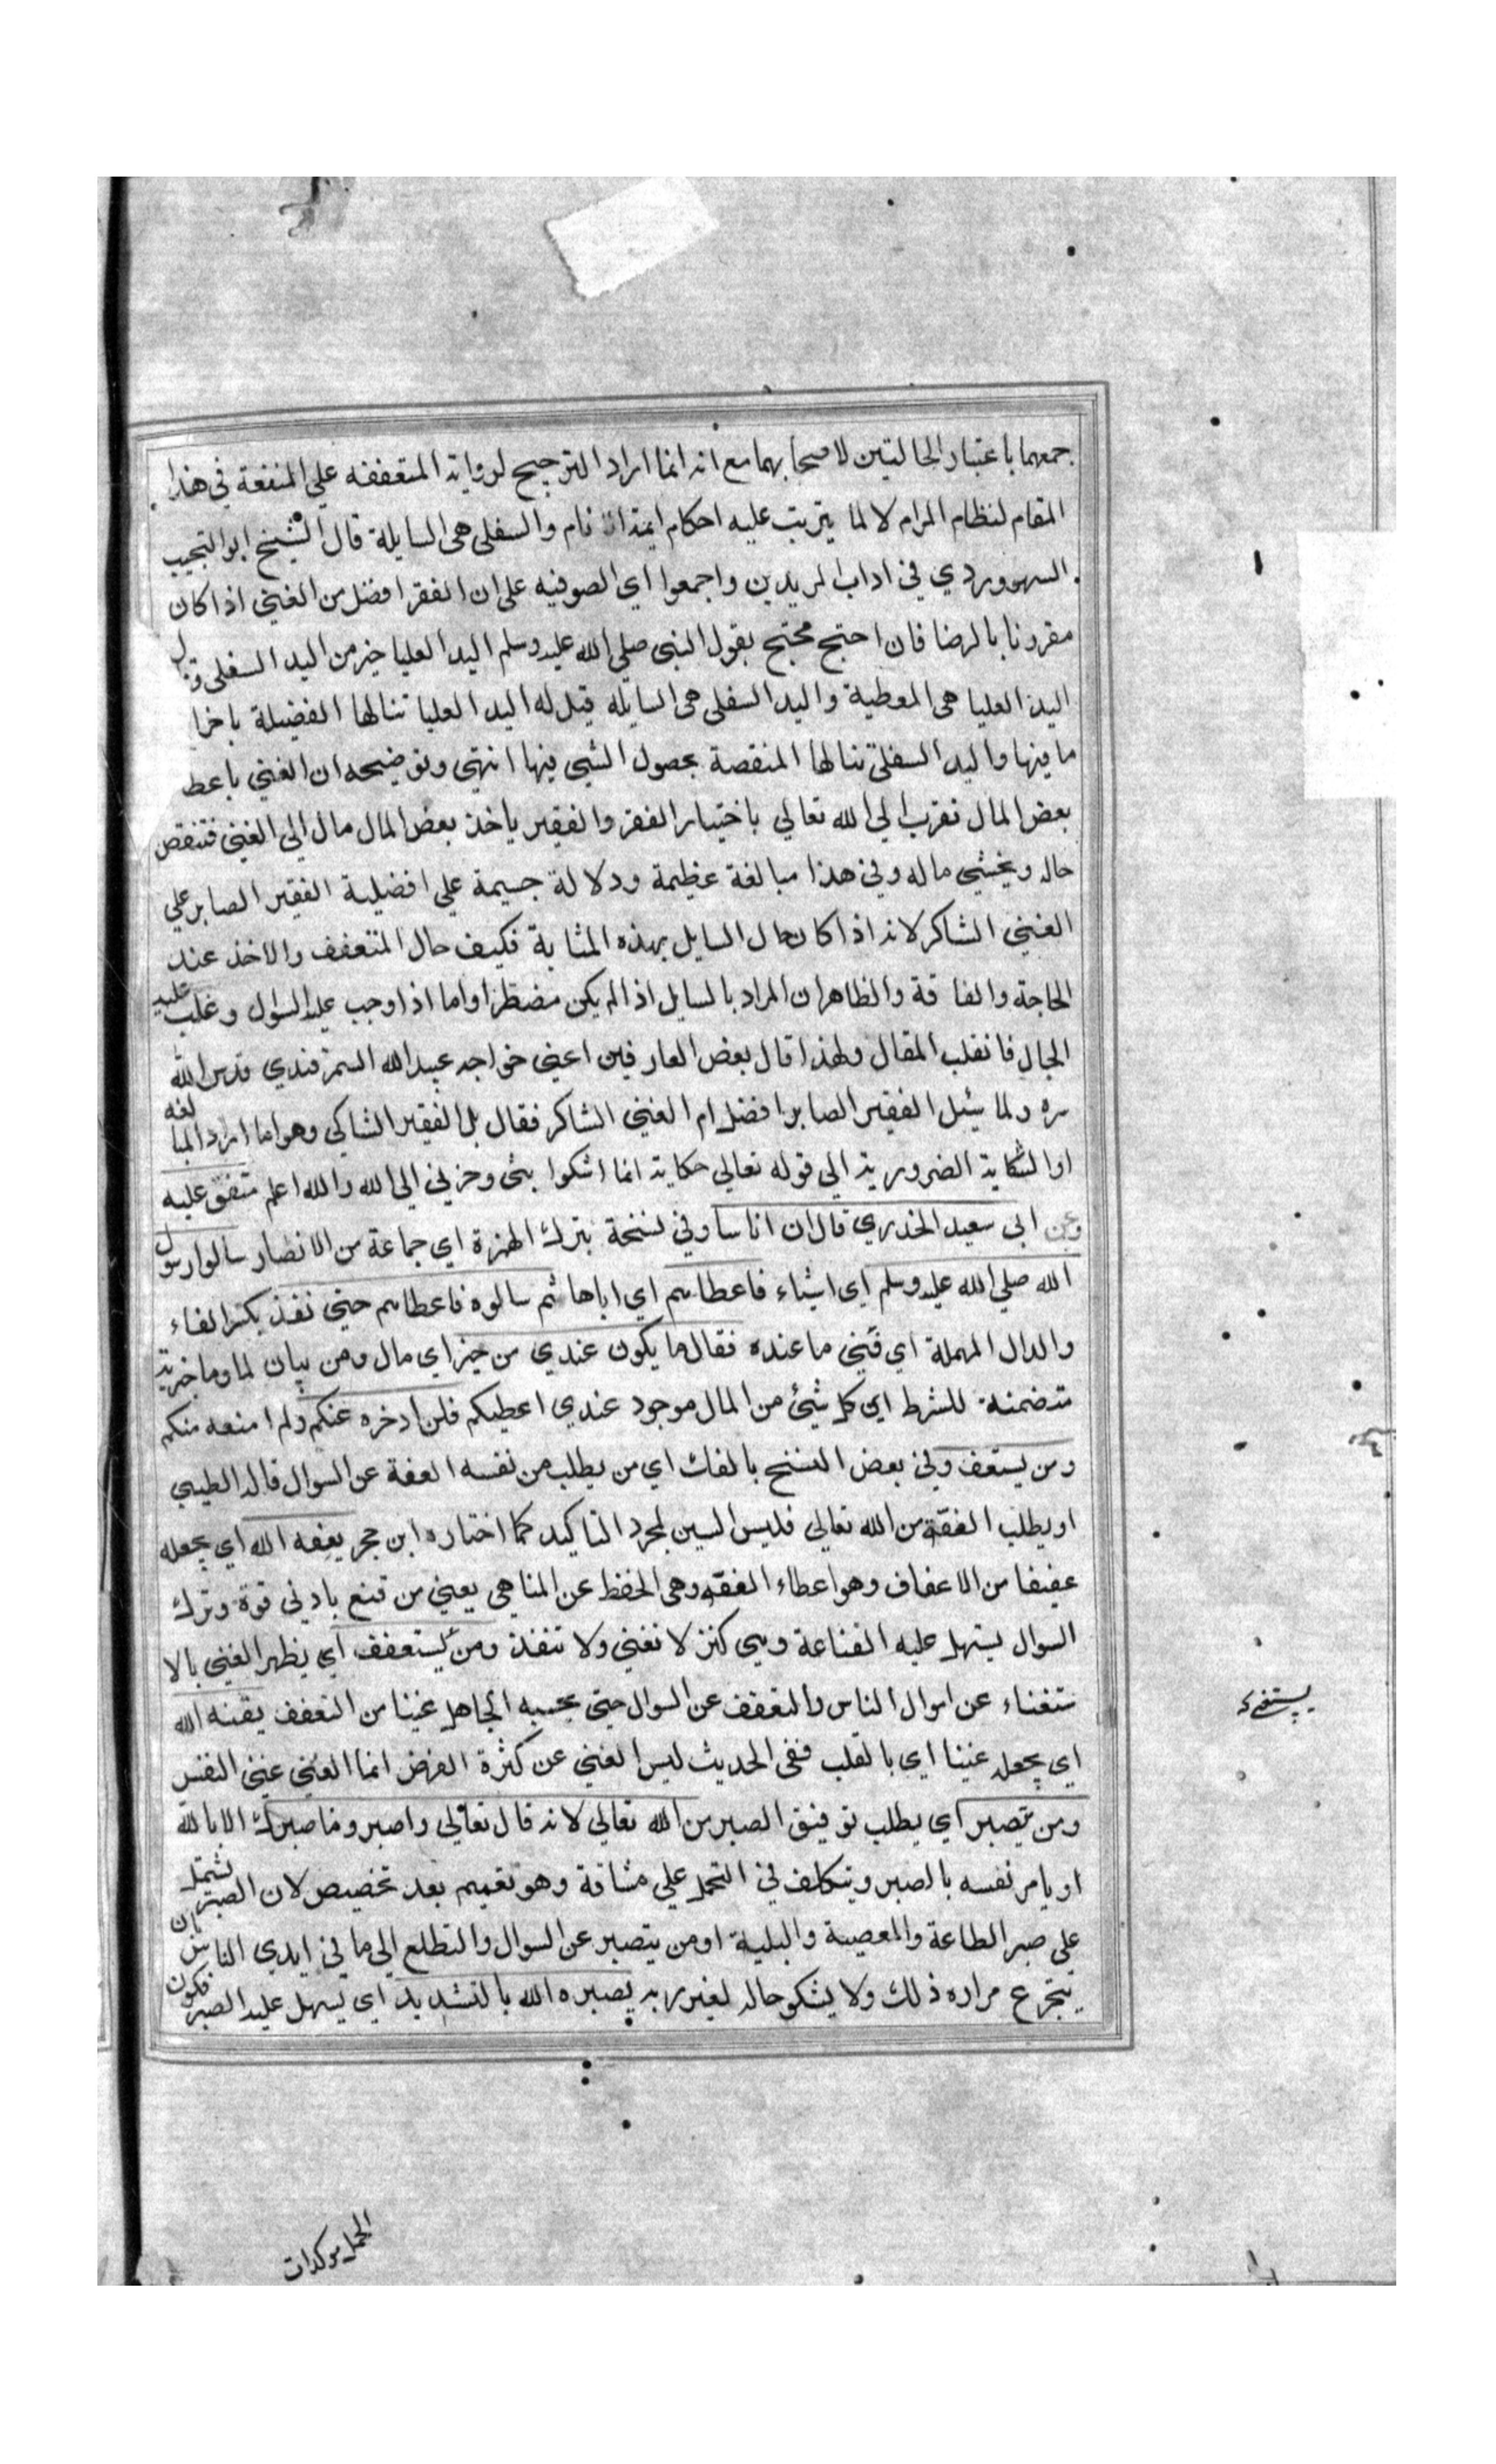 جمعهما باعتبار الحالتين لاصحابهما مع انه انما اراد الترجيح لرواية المتعففه علي المنفعة في هذا
المقام لنظام المرام لا لما يترتب عليه احكام ايمة الانام والسفلى هى السايلة قال الشيخ ابو النجيب
السهروردي في اداب المريدين واجمعوا اي الصوفيه على ان الفقر افضل من الغني اذا كان
مقرونا بالرضا فان احتج محتج بقول النبى صلي الله عليه وسلم اليد العليا خير من اليد السفلى وقال
اليد العليا هى المعطية واليد السفلى هى السايله قيل له اليد العليا تنالها الفضيلة باخرا
ما فيها واليد السفلى تنالها المنقصة بحصول الشي فيها انتهي وتوضيحه ان الغني باعطا
بعض المال تقرب الي الله تعالي باختيار الفقر والفقير ياخذ بعض المال مال الي الغني فتنقص
حاله ويخشي ماله وفي هذا مبالغة عظيمة ودلالة جسيمة علي افضلية الفقير الصابر علي
الغني الشاكر لانه اذا كان حال السايل بهذه المثابة فكيف حال المتعفف والاخذ عند
الحاجة والفاقة والظاهر ان المراد بالسايل اذ الم يكن مضطرا واما اذا وجب عليه السؤال وغلب عليه
الحال فانقلب المقال ولهذا قال بعض العارفين اعني خواجه عبيد الله السمرقندي قدس الله
سره ولما سئل الفقير الصابر افضل ام الغني الشاكر فقال بل الفقير الشاكي وهو اما اراد المبالغه
او الشكاية الضرورية الي قوله تعالي حكاية انما اشكوا بثى وحزني الي الله والله اعلم متفق عليه
وعن ابى سعيد الخدري قال ان اناسا وفي نسخة بترك الهمزة اي جماعة من الانصار سالوا رسول
الله صلي الله عليه وسلم اي اشياء فاعطاهم اي اياها ثم سالوه فاعطاهم حتي نفذ بكسر الفاء
والدال المهملة اي فني ما عنده فقال ما يكون عندي من خير اي مال ومن بيان لما وما خبرية
متضمنة للشرط اي كل شيئ من المال موجود عندي اعطيكم فلن ادخره عنكم ولم امنعه منكم
ومن يستعف وفي بعض النسخ بالفك اي من يطلب من نفسه العفة عن السوال قاله الطيبي
او يطلب العفة من الله تعالي فليس السين لمجرد التاكيد كما اختاره ابن حجر يعفه الله اي يجعله
عفيفا من الاعفاف وهو اعطاء العفه وهى الحفظ عن المناهي يعني من قنع بادني قوة وترك
السوال يسهل عليه القناعة وهي كنز لا تغني ولا تنفذ ومن يستعفف اي يظهر الغني بالا
ستغناء عن اموال الناس والتعفف عن السوال حتي يحسبه الجاهل غنيا من التعفف يقنه الله
اي يجعله غنيا اي بالقلب ففى الحديث ليس الغني عن كثرة العرض انما الغني غني النفس
ومن يتصبر اي يطلب توفيق الصبر من الله تعالي لانه قال تعالى واصبر وما صبرك الا بالله
او يامر نفسه بالصبر ويتكلف في التحمل علي مشاقة وهو تعميم بعد تخصيص لان الصبر يشتمل
على صبر الطاعة والمعصية والبلية او من يتصبر عن السوال والتطلع الي ما في ايدي الناس بان
يتجرع مراره ذلك ولا يشكو حاله لغير ربه يصبره الله بالتشديد اي يسهل عليه الصبر فيكون
يستغن
الجمل موكدات